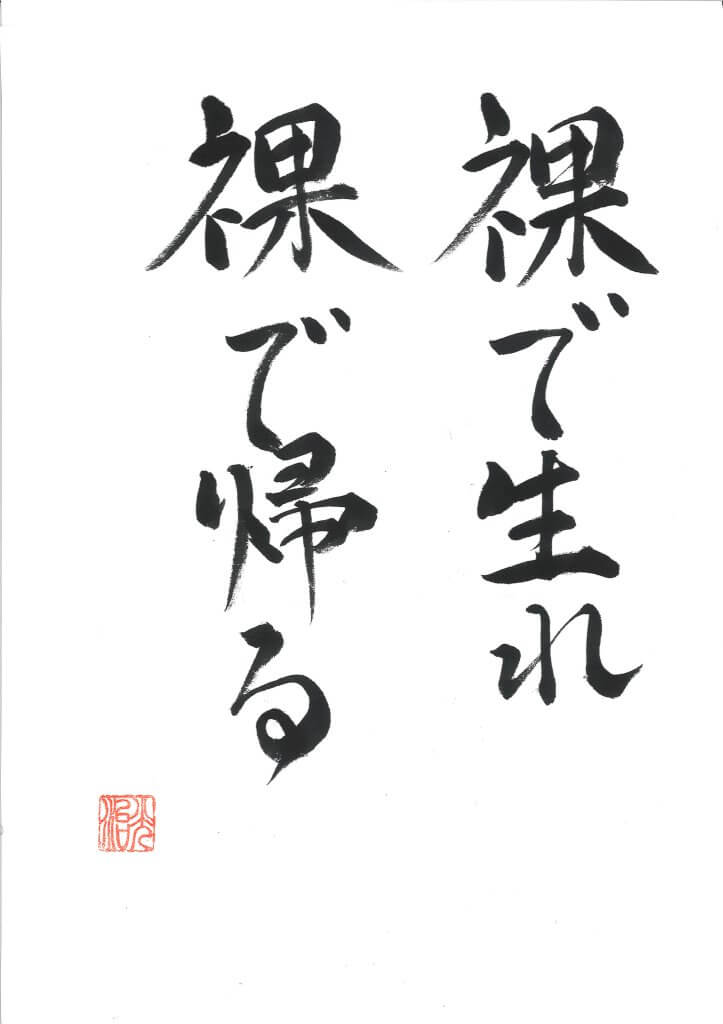 裸で生れ
裸で帰る